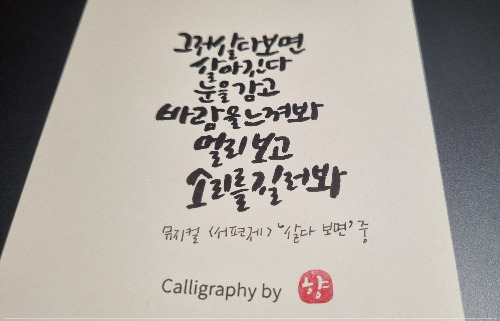 그저살다보면
살아진다
눈을감고
바람을느껴봐
멀리보고
소리를질러봐
뮤지컬 <서편제> '살다 보면' 중
Calligraphy by 향